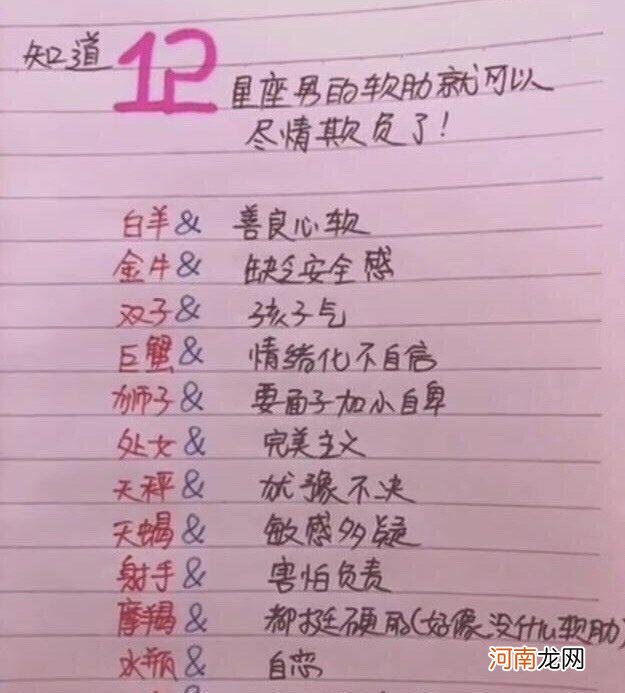 知道12星座男的软肋就可以
尽情欺负了!
白羊& 善良心软
金牛& 缺乏安全感
双子& 孩子气
巨蟹& 情绪化不自信
狮子& 要面子加小自卑
处女& 完美主义
天秤& 犹豫不决
天蝎& 敏感多疑
射手& 害怕负责
摩羯& 都挺硬的(好像没什么软肋)
水瓶& 自恋
河南龙网